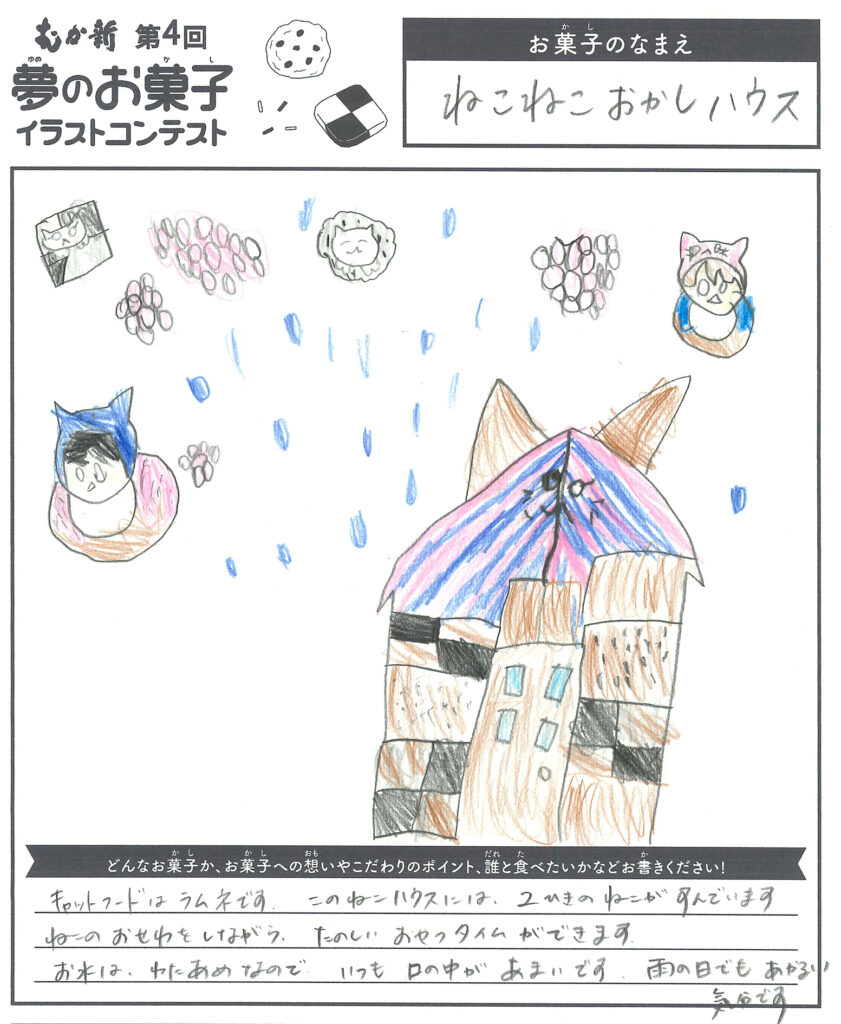 むか新 第4回
夢のお菓子
ゆめ か し
イラストコンテスト
お菓子のなまえ
か し
ねこねこおかしハウス
どんなお菓子か、お菓子への想いやこだわりのポイント、誰と食べたいかなどお書きください!
か し か し おも だれ た か
キャットフードは ラムネです. このねこハウスには、2ひきの ねこが すんでいます
ねこの おせわを しながら、 たのしい おやつタイム ができます.
お水は、わたあめなので いつも 口の中が あまいです. 雨の日でも あかるい
気分です